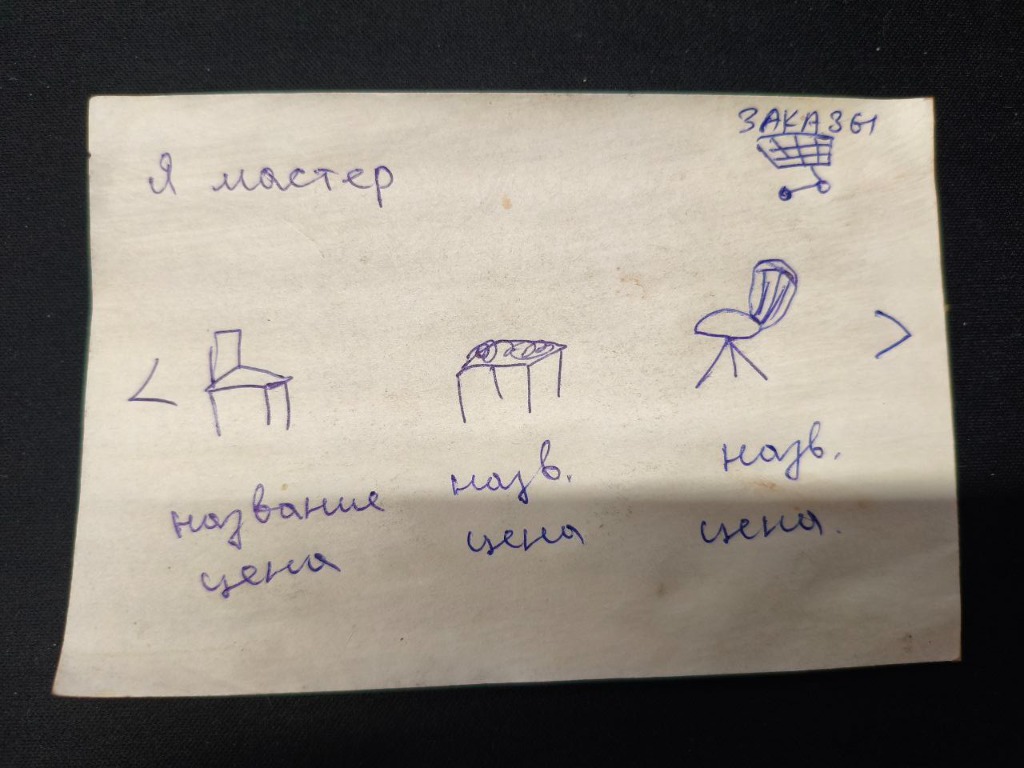 ЗАКАЗЫ
Я мастер
< >
название назв. назв.
цена цена цена.